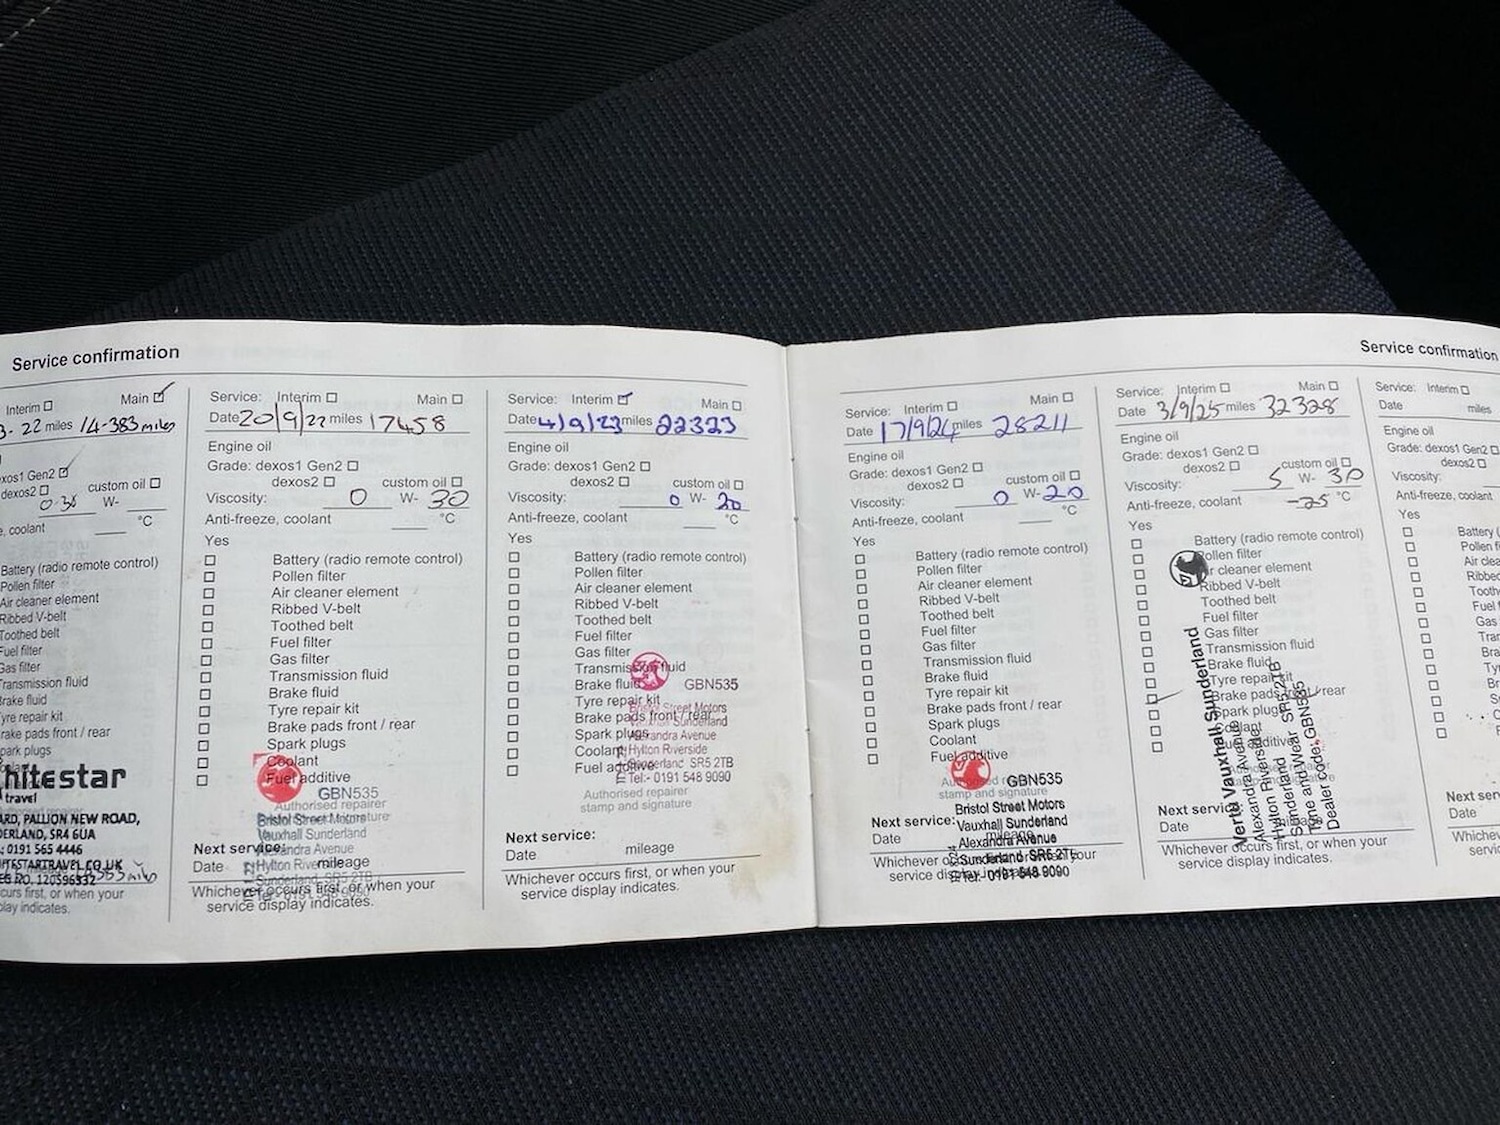 Service confirmation
Interim Main
3. 22 miles 14-383 miles
xos1 Gen2
dexos2 custom oil
W-
, coolant °C
Battery (radio remote control)
Pollen filter
Air cleaner element
Ribbed V-belt
Toothed belt
Fuel filter
Gas filter
Transmission fluid
Brake fluid
yre repair kit
rake pads front / rear
park plugs
hitestar
travel
ARD, PALLION NEW ROAD,
DERLAND, SR4 6UA
: 0191 565 4446
HITESTARTRAVEL.CO.UK
EG RO. 120596332
curs first, or when your
play indicates.
Service: Interim Main
Date 20/9/22 miles 17458
Engine oil
Grade: dexos1 Gen2
dexos2 custom oil
Viscosity: 0 W- 30
Anti-freeze, coolant °C
Yes
Battery (radio remote control)
Pollen filter
Air cleaner element
Ribbed V-belt
Toothed belt
Fuel filter
Gas filter
Transmission fluid
Brake fluid
Tyre repair kit
Brake pads front / rear
Spark plugs
Coolant
Fuel additive
GBN535
Authorised repairer
Bristol Street Motors
Vauxhall Sunderland
Next service:
Date mileage
Whichever occurs first, or when your
service display indicates.
Service: Interim Main
Date 4/9/23 miles 22323
Engine oil
Grade: dexos1 Gen2
dexos2 custom oil
Viscosity: 0 W- 20
Anti-freeze, coolant °C
Yes
Battery (radio remote control)
Pollen filter
Air cleaner element
Ribbed V-belt
Toothed belt
Fuel filter
Gas filter
Transmission fluid
Brake fluid GBN535
Tyre repair kit
Brake pads front / rear
Spark plugs
Coolant
Fuel additive
Bristol Street Motors
Vauxhall Sunderland
Alexandra Avenue
Hylton Riverside
Sunderland SR5 2TB
Tel:- 0191 548 9090
Authorised repairer
stamp and signature
Next service:
Date mileage
Whichever occurs first, or when your
service display indicates.
Service confirmation
Service: Interim Main
Date 17/9/24 miles 28211
Engine oil
Grade: dexos1 Gen2
dexos2 custom oil
Viscosity: 0 W- 20
Anti-freeze, coolant °C
Yes
Battery (radio remote control)
Pollen filter
Air cleaner element
Ribbed V-belt
Toothed belt
Fuel filter
Gas filter
Transmission fluid
Brake fluid
Tyre repair kit
Brake pads front / rear
Spark plugs
Coolant
Fuel additive
GBN535
stamp and signature
Bristol Street Motors
Vauxhall Sunderland
Alexandra Avenue
Sunderland SR5 2TL
Tel: 0191 548 9090
Next service:
Date mileage
Service: Interim Main
Date 3/9/25 miles 32328
Engine oil
Grade: dexos1 Gen2
dexos2 custom oil
Viscosity: 5 W- 30
Anti-freeze, coolant -25 °C
Yes
Battery (radio remote control)
Pollen filter
ir cleaner element
Ribbed V-belt
Toothed belt
Fuel filter
Gas filter
Transmission fluid
Brake fluid
Tyre repair kit
Brake pads front / rear
Spark plugs
Coolant
Vertu Vauxhall Sunderland
Alexandra Avenue
Hylton Riverside
Sunderland SR5 2TB
Tyne and Wear
Dealer code: GBN535
Next service:
Date
Whichever occurs first, or when your
service display indicates.
Service: Interim
Date miles
Engine oil
Grade: dexos1 Gen2
dexos2
Viscosity:
Anti-freeze, coolant
Yes
Battery (
Pollen fi
Air clea
Ribbed
Tooth
Fuel f
Gas
Tran
Bra
Ty
Br
S
C
Next ser
Date
Whiche
servic